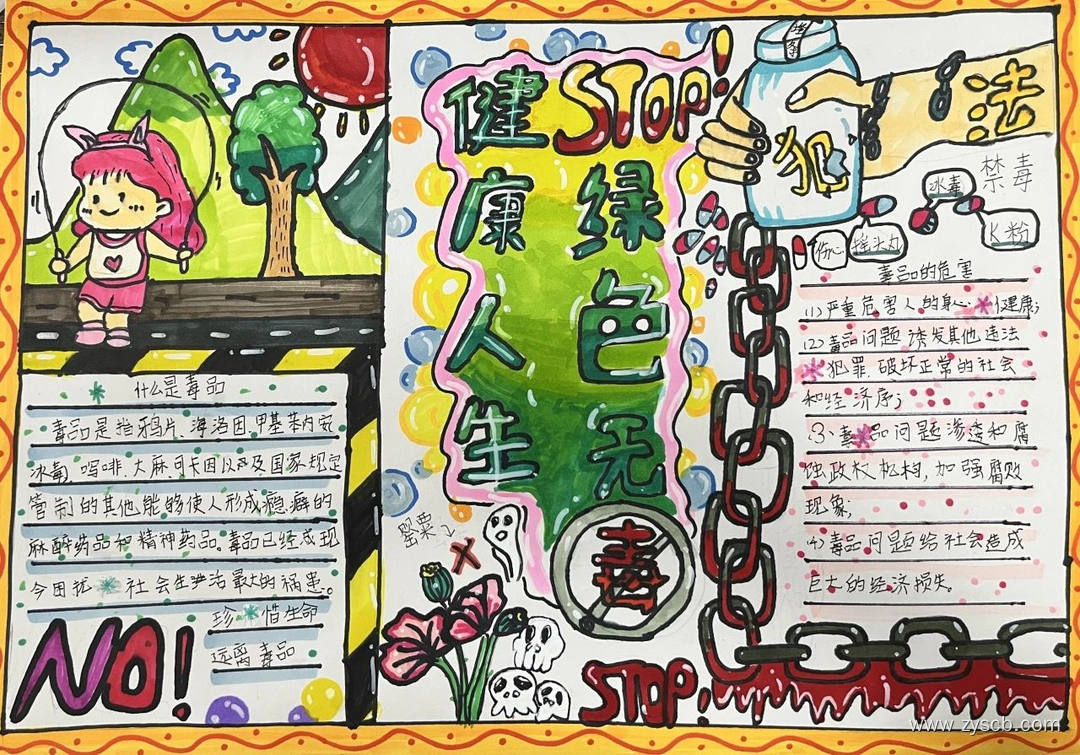 健康人生
STOP!
绿色无毒
法
犯
禁毒
冰毒
K粉
摇头丸
什么是毒品
毒品是指鸦片、海洛因、甲基苯内安
冰毒、吗啡、大麻、可卡因以及国家规定
管制的其他能够使人形成瘾癖的
麻醉药品和精神药品。毒品已经成现
今困扰社会生活最大的祸患。
珍惜生命
远离毒品
NO!
罂粟
STOP!
毒品的危害
(1)严重危害人的身心健康;
(2)毒品问题诱发其他违法
犯罪,破坏正常的社会
和经济序;
(3)、毒品问题渗透和腐
蚀政权机构,加强腐败
现象;
(4)毒品问题给社会造成
巨大的经济损失。
www.zyscb.com